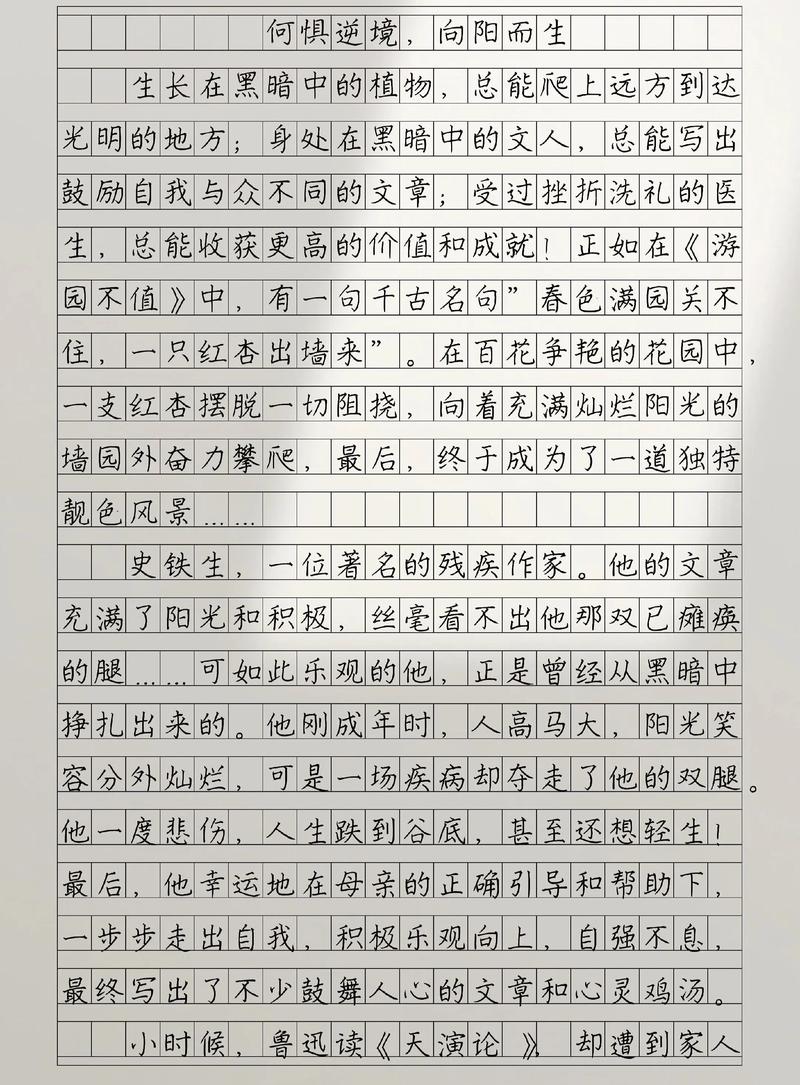 何惧逆境，向阳而生
生长在黑暗中的植物，总能爬上远方到达
光明的地方；身处在黑暗中的文人，总能写出
鼓励自我与众不同的文章；受过挫折洗礼的医
生，总能收获更高的价值和成就！正如在《游
园不值》中，有一句千古名句”春色满园关不
住，一只红杏出墙来”。在百花争艳的花园中，
一支红杏摆脱一切阻挠，向着充满灿烂阳光的
墙园外奋力攀爬，最后，终于成为了一道独特
靓色风景……
史铁生，一位著名的残疾作家。他的文章
充满了阳光和积极，丝毫看不出他那双已瘫痪
的腿……可如此乐观的他，正是曾经从黑暗中
挣扎出来的。他刚成年时，人高马大，阳光笑
容分外灿烂，可是一场疾病却夺走了他的双腿。
他一度悲伤，人生跌到谷底，甚至还想轻生！
最后，他幸运地在母亲的正确引导和帮助下，
一步步走出自我，积极乐观向上，自强不息，
最终写出了不少鼓舞人心的文章和心灵鸡汤。
小时候，鲁迅读《天演论》，却遭到家人